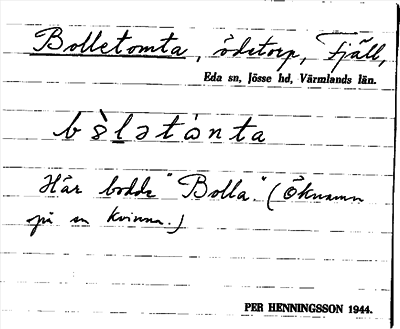 Bolletomta, ödetorp, Fjäll,
Eda sn, Jösse hd, Värmlands län.
bo̊̀lətȯnta
Här bodde "Bolla." (Öknamn
på en kvinna.)
PER HENNINGSSON 1944.